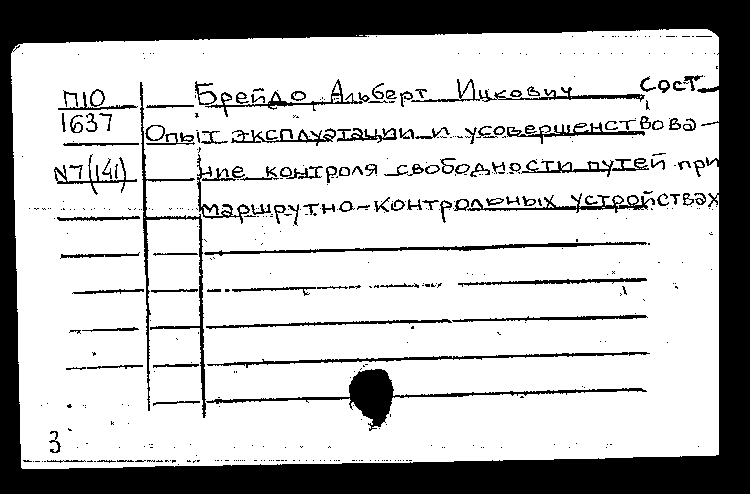 П10 Брейдо, Альберт Ицкович сост
1637 Опыт эксплуатации и усовершенствова-
N7(141) ние контроля свободности путей при
маршрутно-контрольных устройствах
3